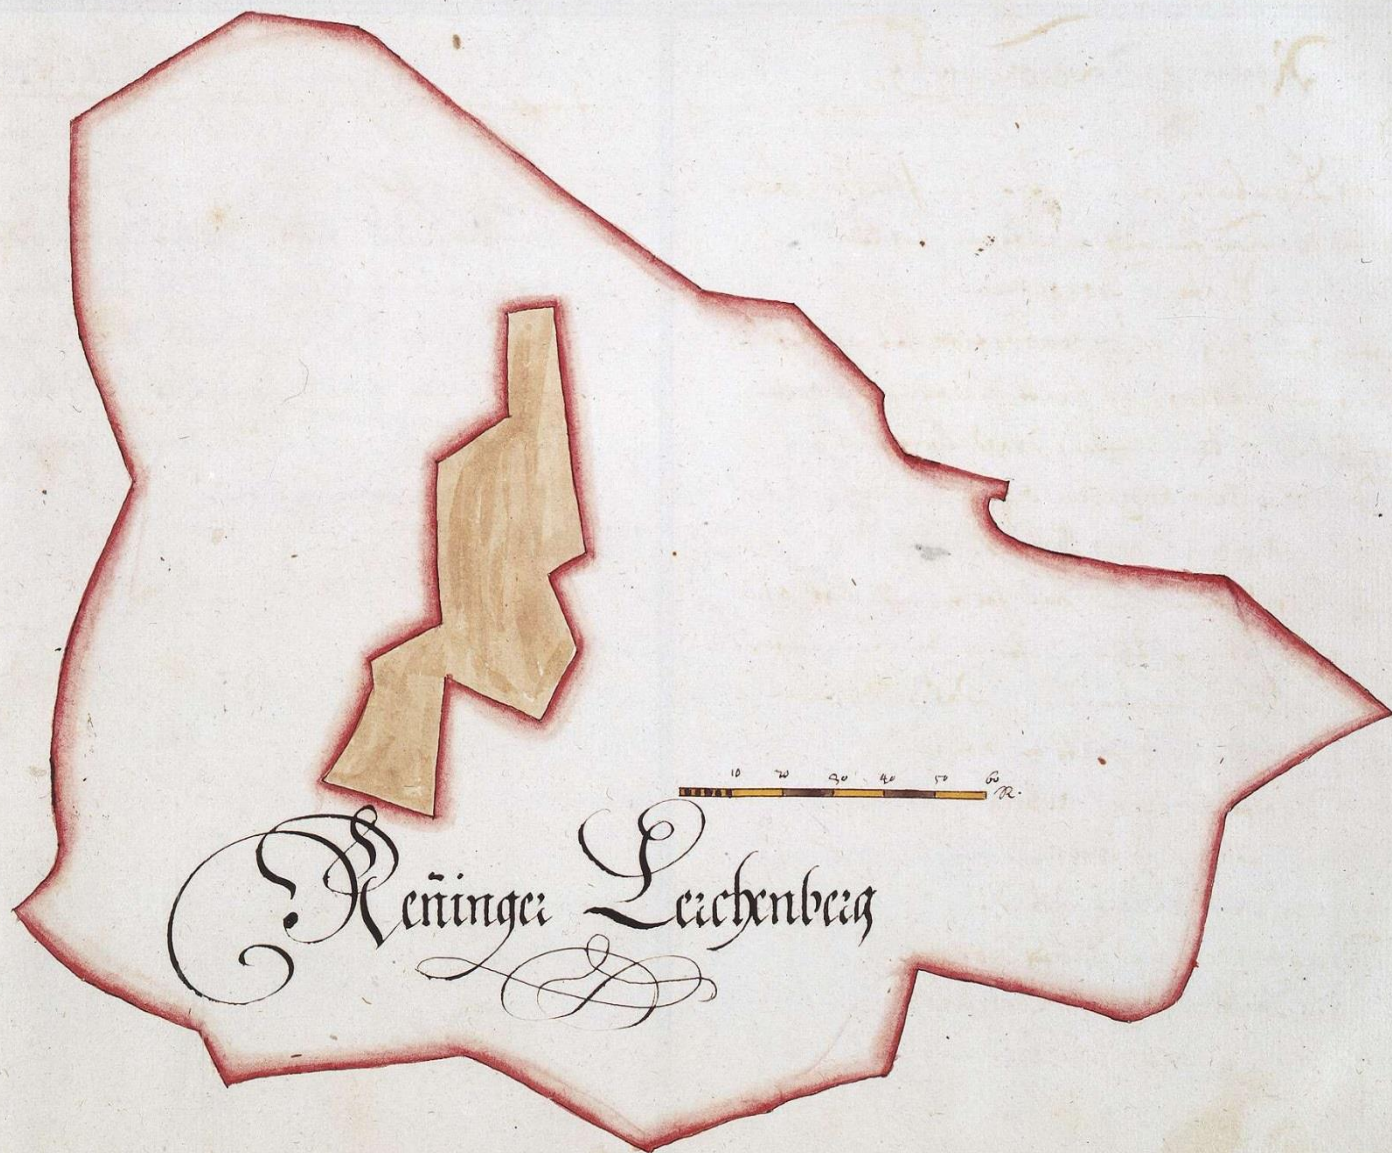 10 20 30 40 50 60 R.
Reñinger Lerchenberg